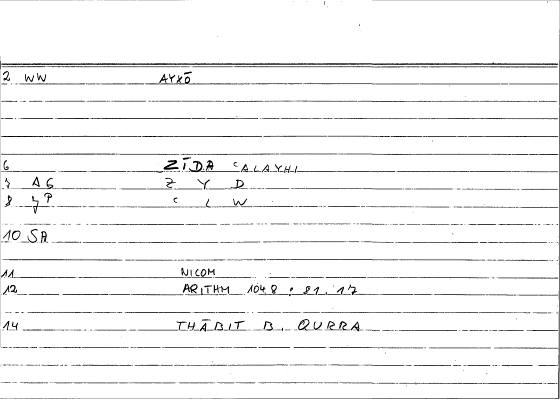 2 WW AYXŌ
6 ZĪDA ʿALAYHI
7 AG Z Y D
8 JP ʿ L W
10 SA
11 NICOM
12 ARITHM 1048 : 21.17
14 THĀBIT B. QURRA